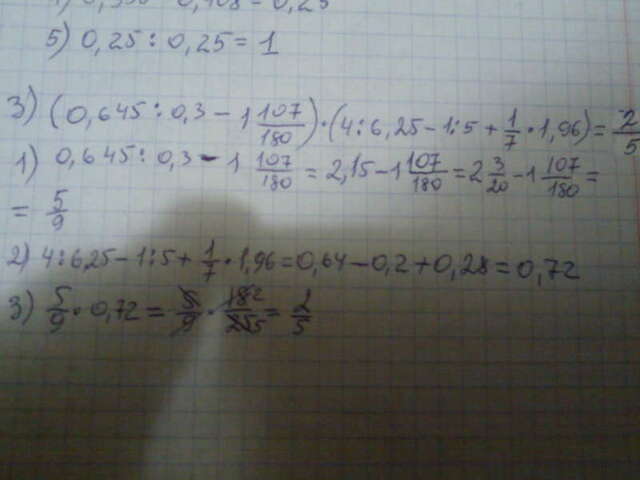 5) 0,25 : 0,25 = 1
3) (0,645 : 0,3 - 1 107/180) · (4 : 6,25 - 1 : 5 + 1/7 · 1,96) = 2/5
1) 0,645 : 0,3 - 1 107/180 = 2,15 - 1 107/180 = 2 3/20 - 1 107/180 =
= 5/9
2) 4 : 6,25 - 1 : 5 + 1/7 · 1,96 = 0,64 - 0,2 + 0,28 = 0,72
3) 5/9 · 0,72 = 5/9 · = 2/5